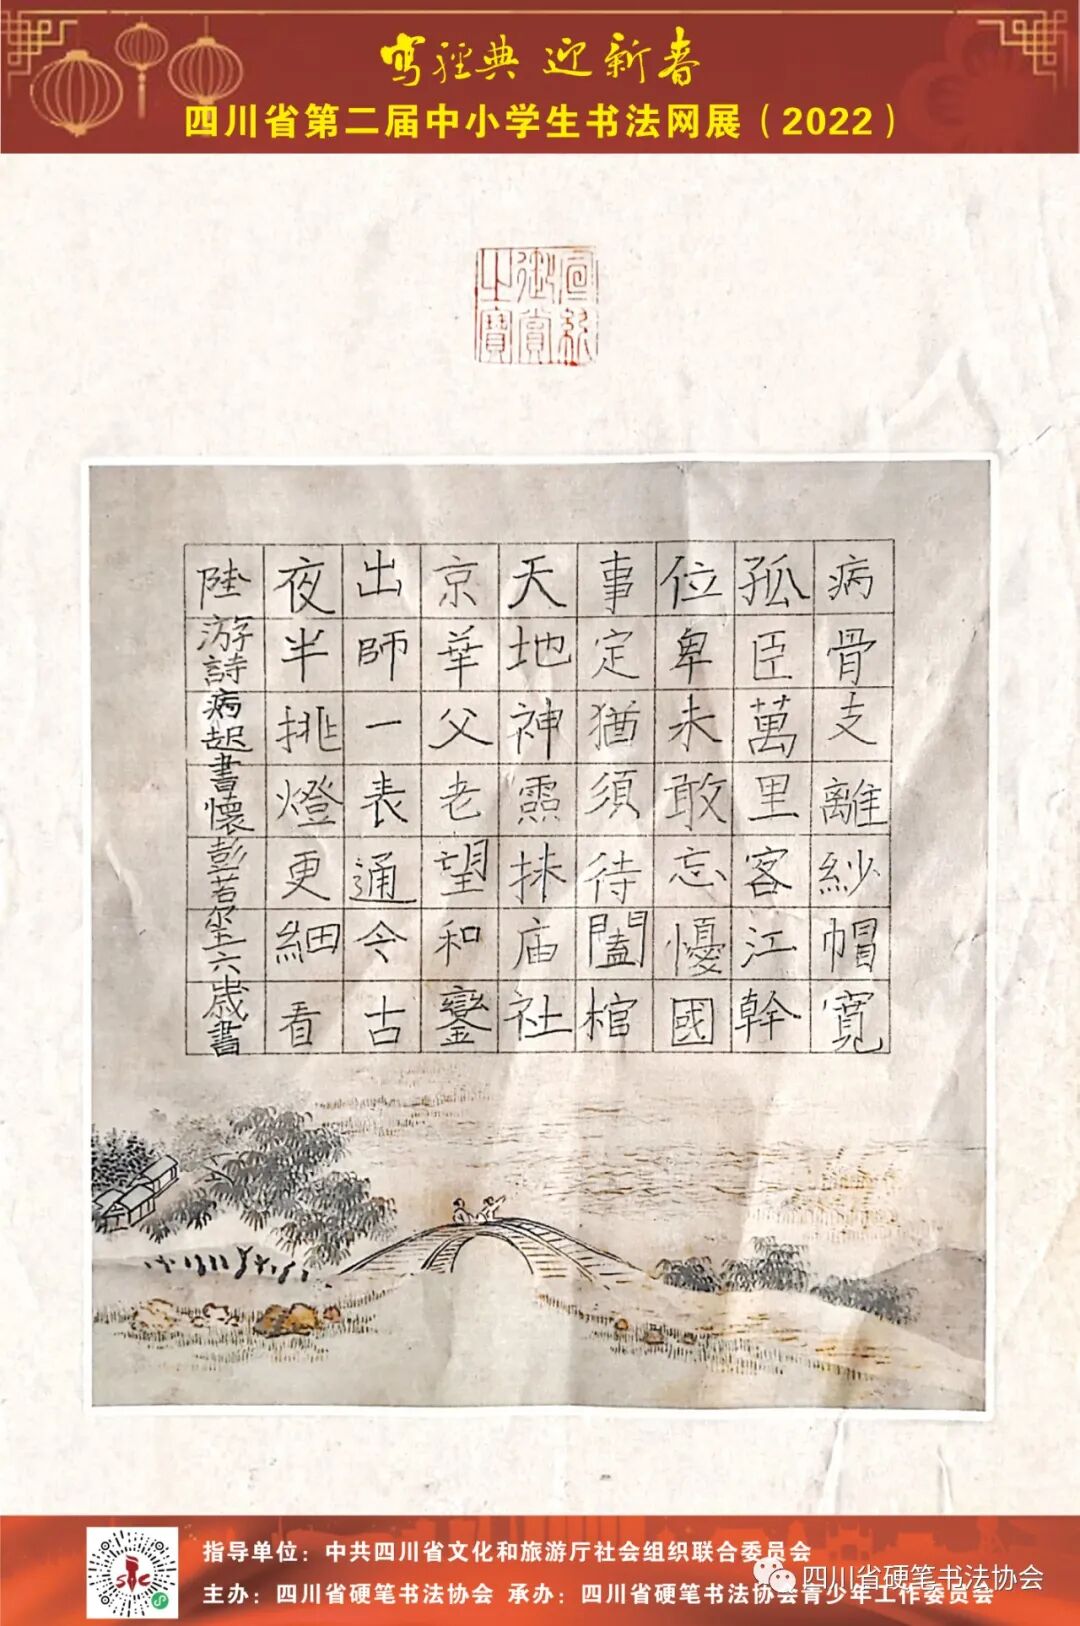 寫經典 迎新春
四川省第二届中小学生书法网展（2022）
御賞
之寶
病骨支離紗帽寬
孤臣萬里客江幹
位卑未敢忘憂國
事定猶須待闔棺
天地神靈扶庙社
京華父老望和鑾
出師一表通今古
夜半挑燈更細看
陸游詩病起書懷彭若六歲書
指导单位：中共四川省文化和旅游厅社会组织联合委员会
主办：四川省硬笔书法协会 承办：四川省硬笔书法协会青少年工作委员会
四川省硬笔书法协会